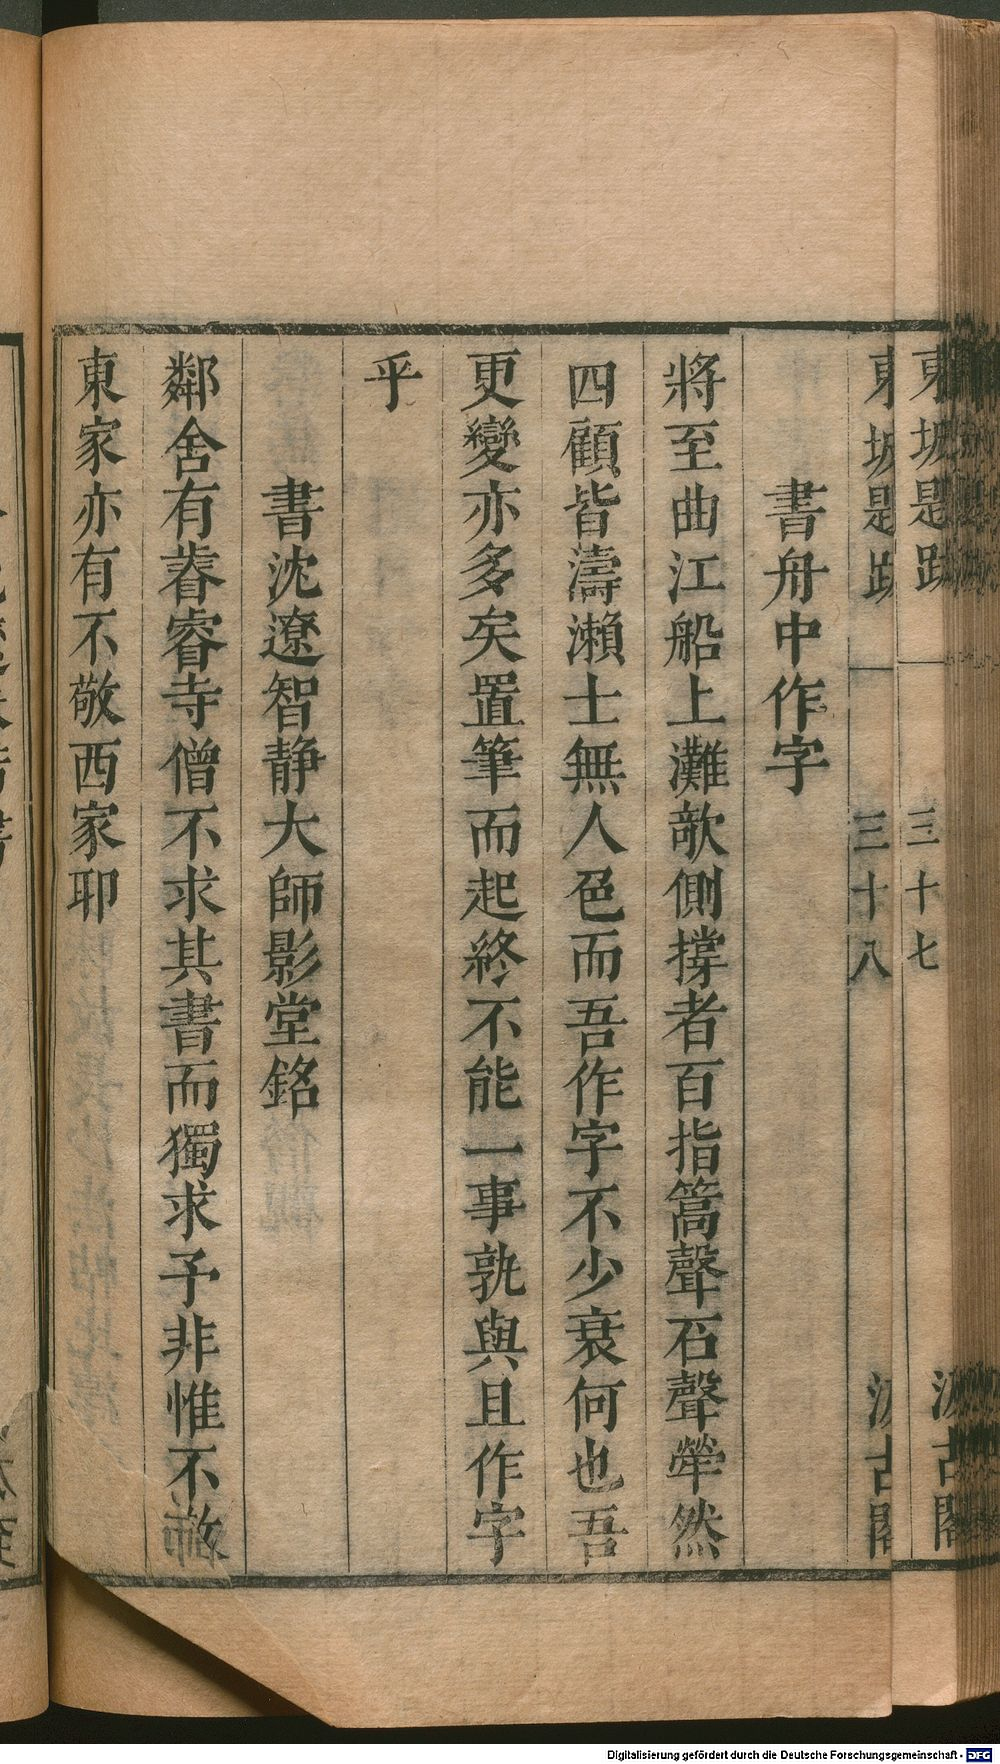 東坡題跋
三十七
汲古閣
東坡題跋
三十八
汲古閣
書舟中作字
將至曲江船上灘欹側撐者百指篙聲石聲犖然
四顧皆濤瀨士無人色而吾作字不少衰何也吾
更變亦多矣置筆而起終不能一事孰與且作字
乎
書沈遼智靜大師影堂銘
鄰舍有睿寺僧不求其書而獨求予非惟不敬
東家亦有不敬西家耶
Digitalisierung gefördert durch die Deutsche Forschungsgemeinschaft - DFG